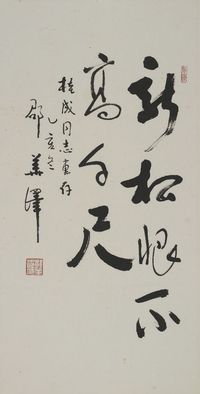 新松恨不
高千尺
桂成同志惠存
乙亥冬
邵华泽